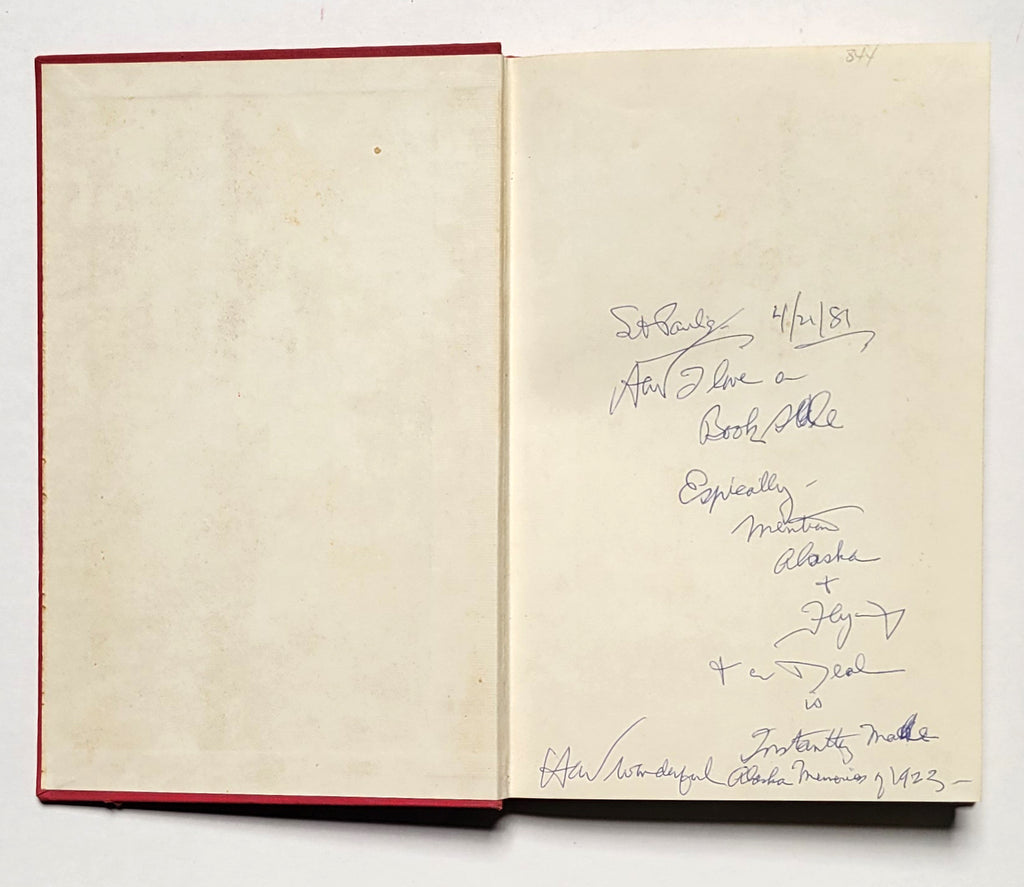 344
St Paul's- 4/21/81
How I love a
Book Sale
Espically -
mention
Alaska
+
Flying
+ a Deal
is
Instantly Made
How wonderful Alaska Memories of 1923 -